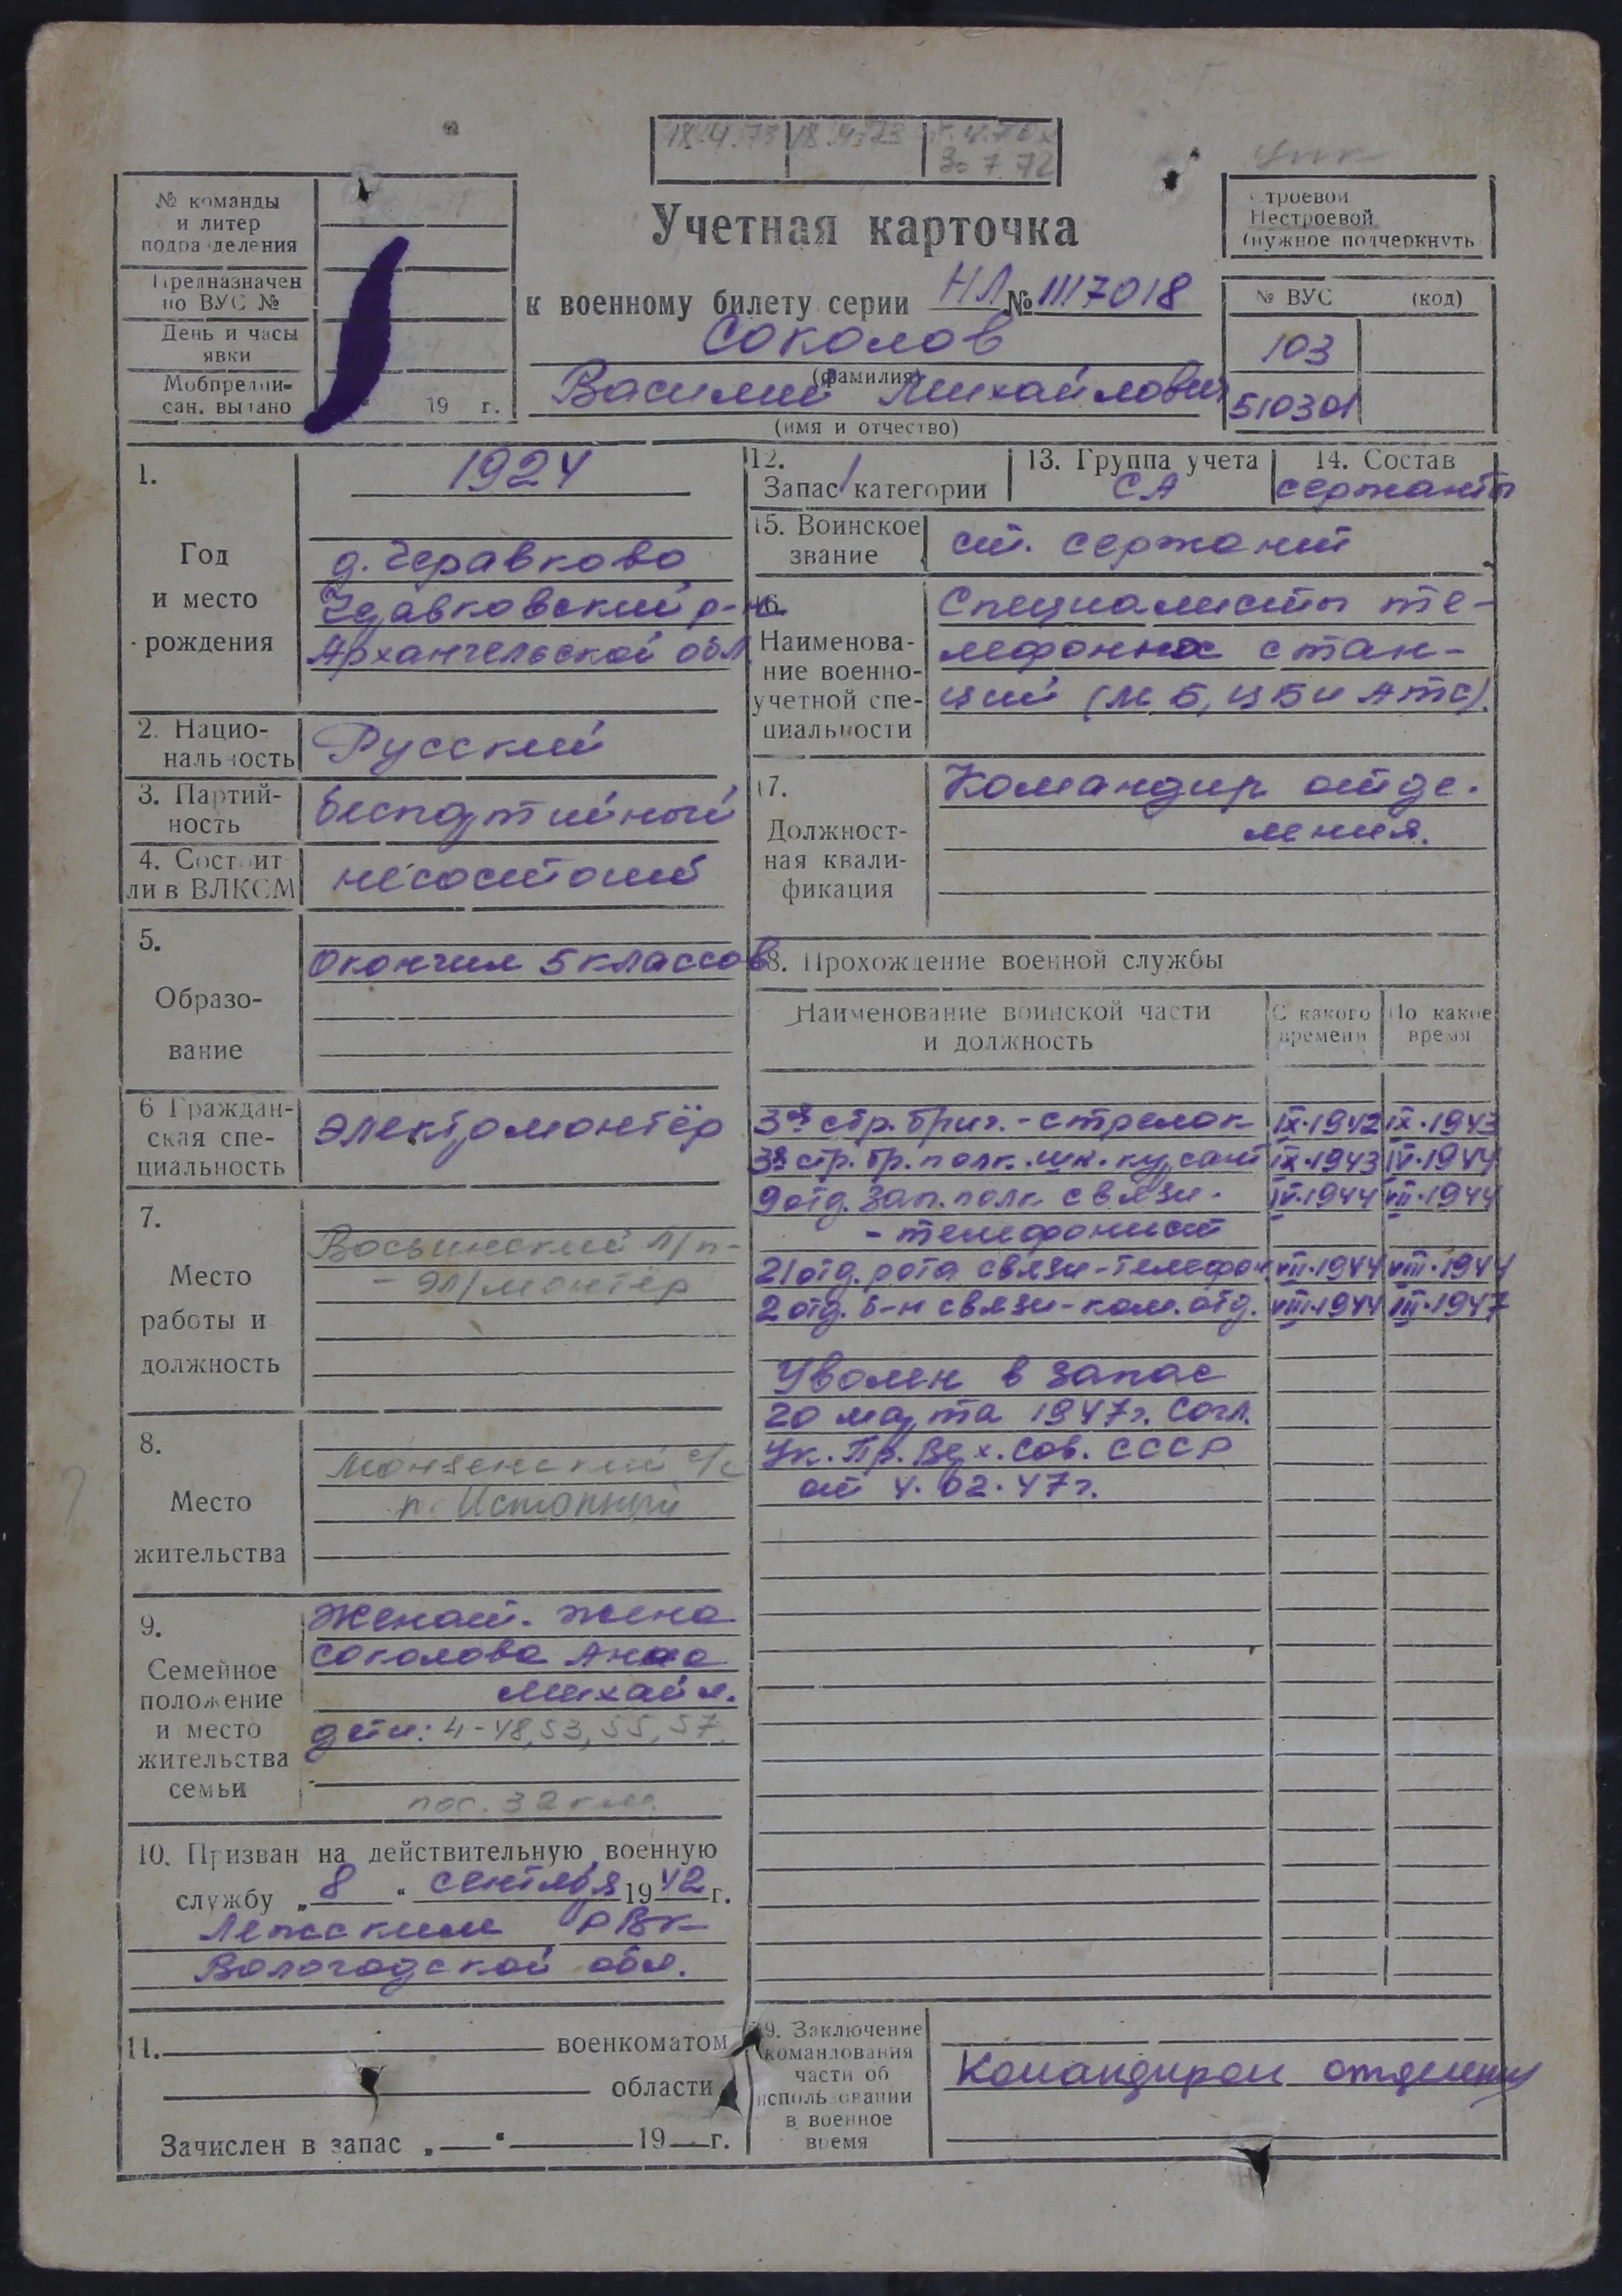 18.4.73 18.4.73
30 7 72
№ команды
и литер
подразделения
Предназначен
по ВУС №
День и часы
явки
Мобпредпи-
сан. выдано
19 г.
Учетная карточка
к военному билету серии НЛ № 1117018
Соколов
(фамилия)
Василий Михайлович
(имя и отчество)
Строевой
Нестроевой
(нужное подчеркнуть
№ ВУС (код)
103
510301
1.
Год
и место
рождения
1924
д. Черавково
Чеавковский р-н
Архангельской обл
2. Нацио-
нальность
Русский
3. Партий-
ность
беспартийный
4. Состоит
ли в ВЛКСМ
несостоит
5.
Образо-
вание
Окончил 5 классов
6 Граждан-
ская спе-
циальность
электромонтёр
7.
Место
работы и
должность
л/п-
- эл/монтёр
8.
Место
жительства
Монзенский с/с
п. Истопный
9.
Семейное
положение
и место
жительства
семьи
Женат. жена
Соколова Анна
Михайл.
дети: 4-48,53,55,57.
пос. 32 км.
10. Призван на действительную военную
службу „8“ сентября 1942 г.
Лежским РВК
Вологодской обл.
11. военкоматом
области
Зачислен в запас „ “ 19 г.
12.
Запас 1 категории
13. Группа учета
СА
14. Состав
сержанты
15. Воинское
звание
ст. сержант
16.
Наименова-
ние военно-
учетной спе-
циальности
Специалисты те-
лефонных стан-
ций (МБ, ЦБ и АТС).
17.
Должност-
ная квали-
фикация
Командир отде-
ления.
18. Прохождение военной службы
Наименование воинской части
и должность
С какого
времени
По какое
время
38 стр. бриг. - стрелок IX.1942 IX.1943
38 стр. бр. полк. шк. курсант IX.1943 IV.1944
9 отд. зап. полк связи - IV.1944 VII.1944
- телефонист
21 отд. рота связи - телефон VII.1944 VIII.1944
2 отд. б-н связи - ком. отд. VIII.1944 III.1947
Уволен в запас
20 марта 1947 г. Согл.
Ук. Пр. Верх. Сов. СССР
от 4.02.47 г.
19. Заключение
командования
части об
использовании
в военное
время
Командиром отделения